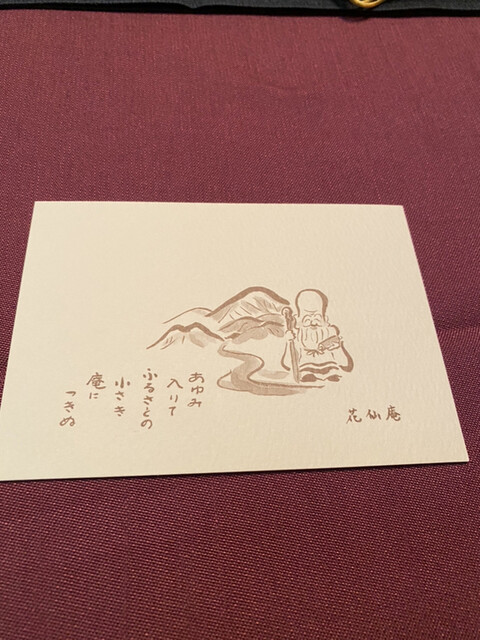 あゆみ
入りて
ふるさとの
小さき
庵に
つきぬ
花仙庵